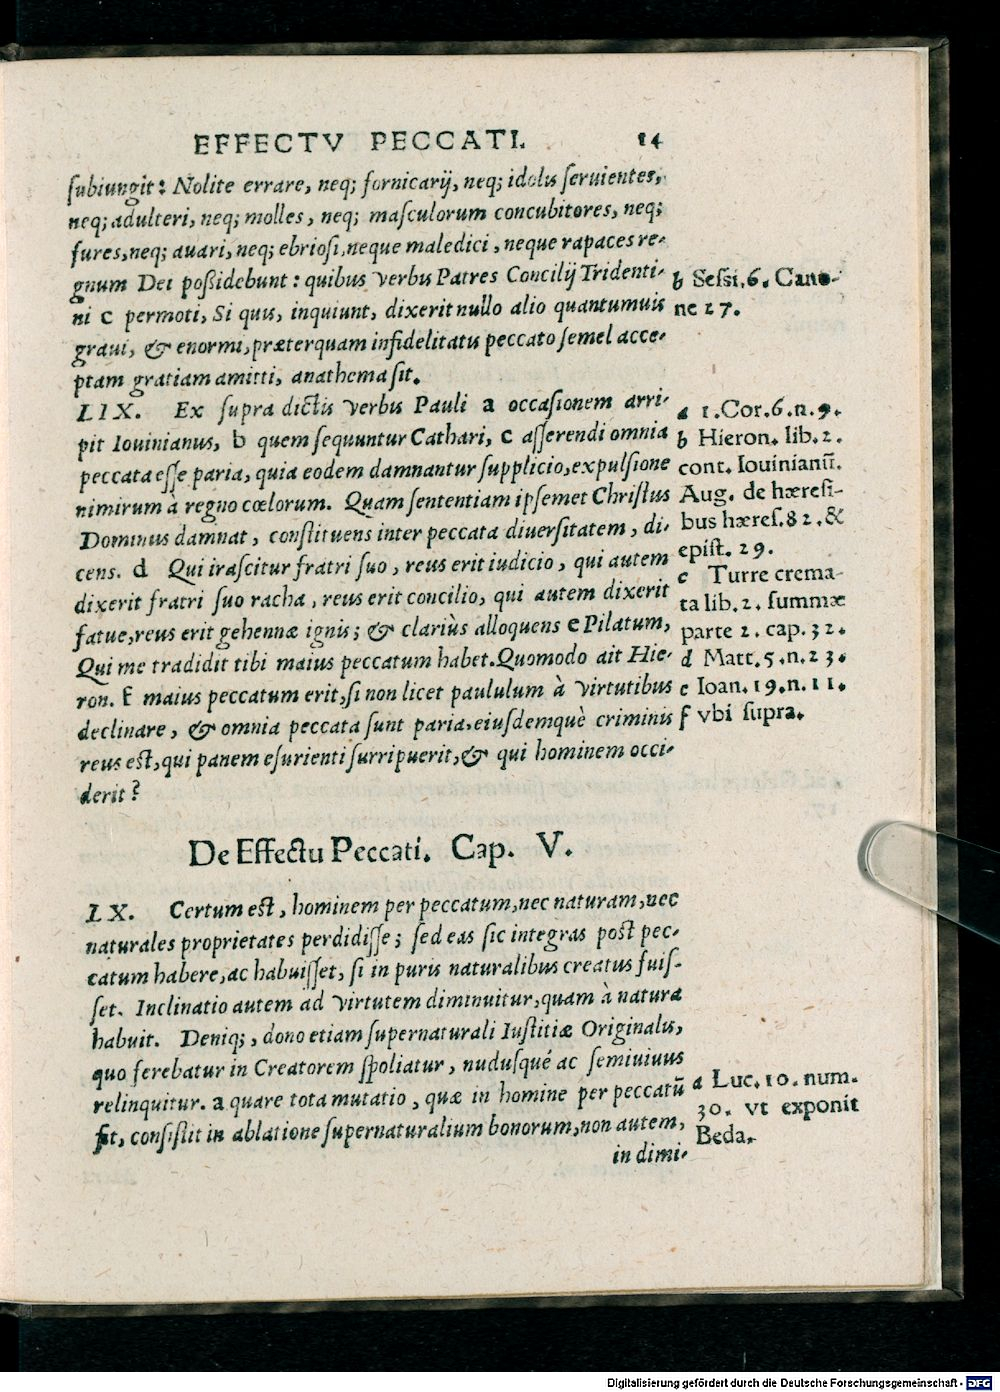 EFFECTV PECCATI. 14
subiungit: Nolite errare, neq; fornicarij, neq; idolis seruientes,
neq; adulteri, neq; molles, neq; masculorum concubitores, neq;
fures, neq; auari, neq; ebriosi, neque maledici, neque rapaces re-
gnum Dei possidebunt: quibus verbis Patres Concilij Tridenti-
ni c permoti, Si quis, inquiunt, dixerit nullo alio quantumuis
graui, & enormi, præterquam infidelitatis peccato semel acce-
ptam gratiam amitti, anathema sit.
b Sessi. 6. Cano-
ne 27.
LIX. Ex supra dictis verbis Pauli a occasionem arri-
pit Iouinianus, b quem sequuntur Cathari, c asserendi omnia
peccata esse paria, quia eodem damnantur supplicio, expulsione
nimirum à regno cœlorum. Quam sententiam ipsemet Christus
Dominus damnat, constituens inter peccata diuersitatem, di-
cens. d Qui irascitur fratri suo, reus erit iudicio, qui autem
dixerit fratri suo racha, reus erit concilio, qui autem dixerit
fatue, reus erit gehennæ ignis; & clariùs alloquens e Pilatum,
Qui me tradidit tibi maius peccatum habet. Quomodo ait Hie-
ron. f maius peccatum erit, si non licet paululum à virtutibus
declinare, & omnia peccata sunt paria, eiusdemquè criminis
reus est, qui panem esurienti surripuerit, & qui hominem occi-
derit?
a 1. Cor. 6. n. 9.
b Hieron. lib. 2.
cont. Iouinianū.
Aug. de hæresi-
bus hæres. 82. &
epist. 29.
c Turre crema-
ta lib. 2. summæ
parte 2. cap. 32.
d Matt. 5. n. 23.
e Ioan. 19. n. 11.
f vbi supra.
De Effectu Peccati. Cap. V.
LX. Certum est, hominem per peccatum, nec naturam, nec
naturales proprietates perdidisse; sed eas sic integras post pec-
catum habere, ac habuisset, si in puris naturalibus creatus fuis-
set. Inclinatio autem ad virtutem diminuitur, quam à natura
habuit. Deniq;, dono etiam supernaturali Iustitiæ Originalis,
quo ferebatur in Creatorem spoliatur, nudusqué ac semiuiuus
relinquitur. a quare tota mutatio, quæ in homine per peccatū
fit, consistit in ablatione supernaturalium bonorum, non autem,
in dimi-
a Luc. 10. num.
30. vt exponit
Beda.
Digitalisierung gefördert durch die Deutsche Forschungsgemeinschaft - DFG